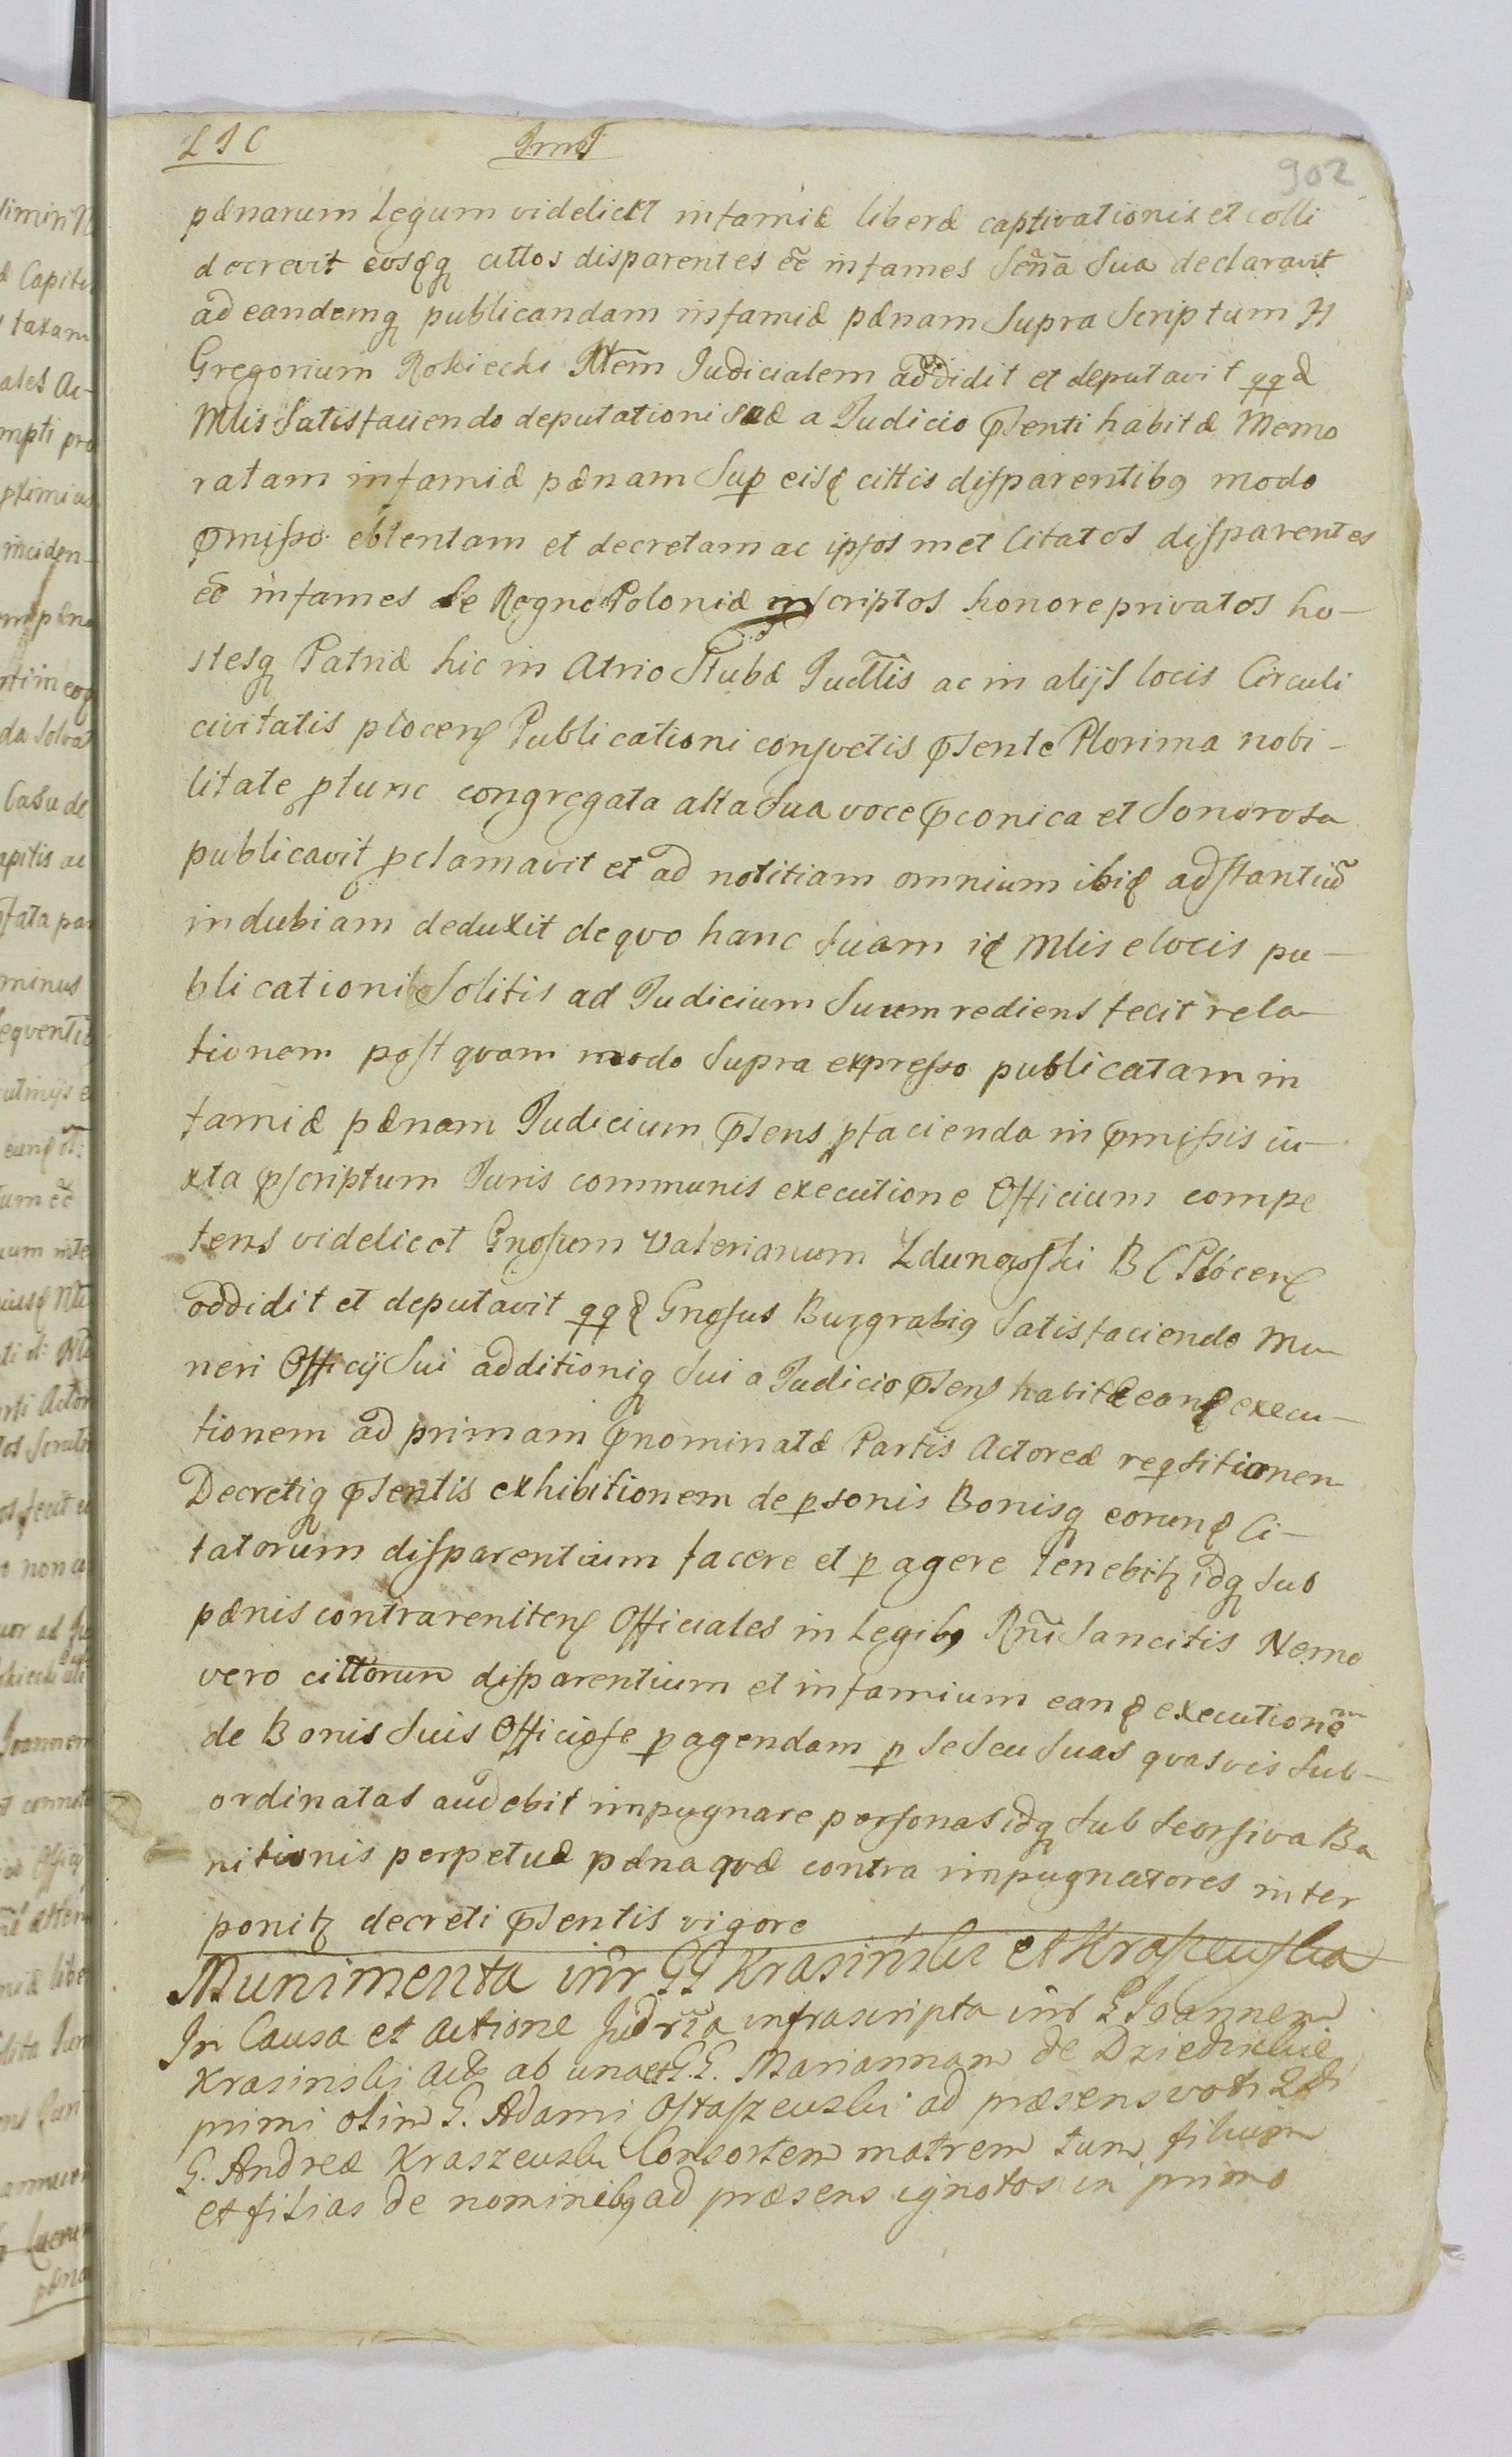 L I C
902
pænarum Legum videlicet infamiæ liberæ captivationis et colli
decrevit eosqq cittos disparentes eē infames Senn̄a Sua declaravit
ad eandemq publicandam infamiæ pænam Supra Scriptum
Gregorium Rokiecki Judicialem addidit et deputavit qqd
Mlis Satisfaciendo deputationi suæ a Judicio pſenti habitæ Memo
ratam infamiæ pænam Sup eisd cittis diſparentibq modo
pmiſso obtentam et decretam ac ipſos met Citatos diſparentes
eē infames de Regno Poloniæ scriptos honore privatos ho—
stesq Patriæ hic in Atrio Stubæ Judllis ac in alijs locis Circuli
civitatis plocenſ Publicationi conſvetis pſente Plurima nobi—
litate ptunc congregata alta Sua voce pconica et Sonorosa
publicavit pclamavit et ad notitiam omnium ibid adſtantiū
indubiam deduxit de qvo hanc Suam id Mlis e locis pu—
blicationi Solitis ad Judicium Suum rediens fecit rela—
tionem post qvam modo Supra expreſso publicatam in
famiæ pænam Judicium pſens p facienda in pmiſsis iu—
xta pſcriptum Juris communis executione Officium compe
tens videlicet Gnoſum Valerianum Zdunowſki B C Plocenſ
addidit et deputavit qqd Gnoſus Burgrabiq Satisfaciendo Mu—
neri Officij Sui additioniq Sui a Judicio pſenſ habitæ eand execu—
tionem ad primam pnominatæ Partis Actoreæ reqſitionem
Decretiq pſentis exhibitionem de psonis Bonisq eorund Ci—
tatorum diſparentium facere et p agere tenebitʒ idq sub
pænis contrarenitenſ Officiales in Legibq Rn̄i Sancitis Nemo
vero cittorum diſparentium et infamium eand executionē
de Bonis Suis Officioſe p agendam p Se Seu Suas qvasvis Sub—
ordinatas audebit impugnare perſonas idq Sub Seorſiva Ba
nitionis perpetuæ pæna qvæ contra impugnatores inter
ponitʒ decreti pſentis vigore
Munimenta intr GG Krasiński et Kraſzewſka
In Causa et Actione infrascripta intr G Joannem
Krasinski Act ab una et G.G. Mariannam de Dziedzickie
primi olim G. Adami Oſtaſzewski ad præsens voti 2di
G. Andreæ Kraszewski Consortem matrem tum filium
et filias de nominibq ad præsens ignotos in primo